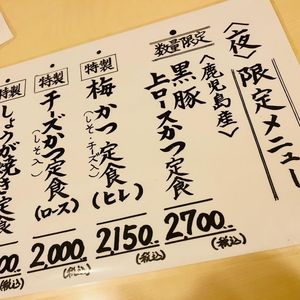 〈夜〉限定メニュー
〈鹿児島産〉
数量限定
黒豚
上ロースかつ定食
2,700
(税込)
特製
梅かつ定食
(しそ・チーズ入)
(ヒレ)
2,150
(税込)
特製
チーズかつ定食
(しそ入)
(ロース)
2,000
(税込)
特製
しょうが焼き定食
00
(税込)